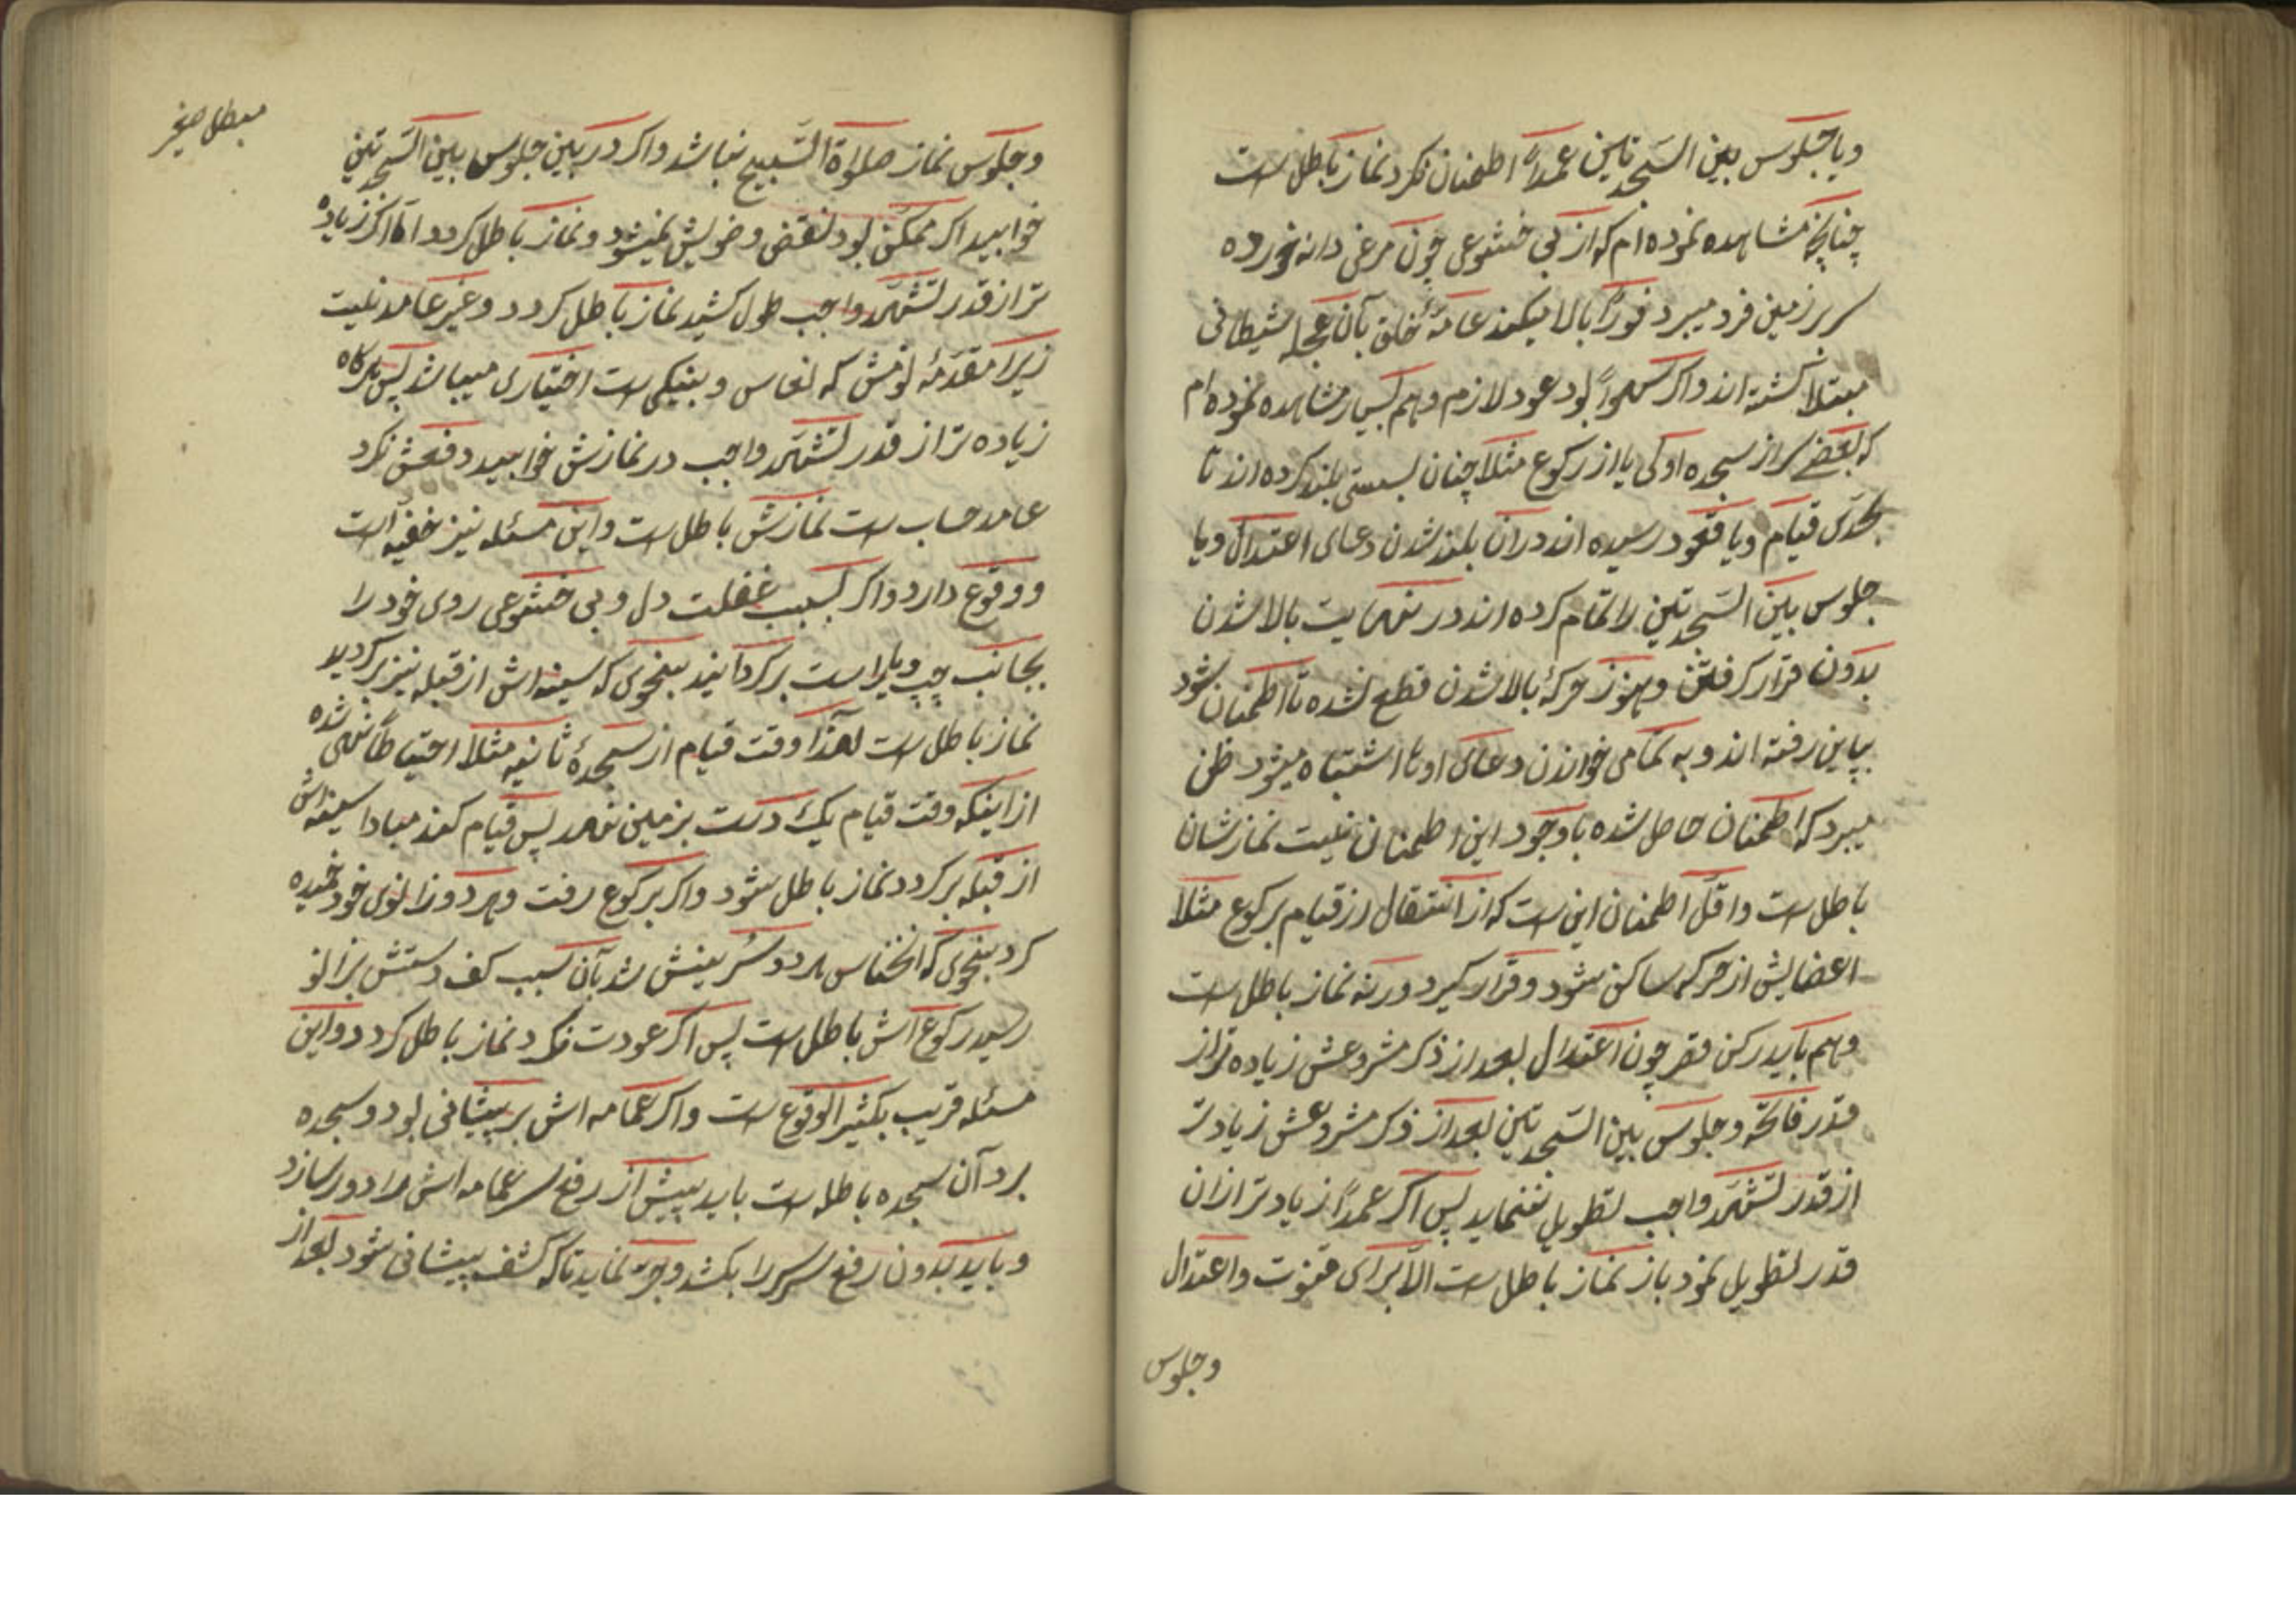 ویا جلوس بین السجدتین عمداً اطمنان نکرد نماز باطل است
چنانچه مشاهده نموده‌ام که از بی خشوعی چون مرغی دانه خورده
سر بر زمین فرد میبرد فوراً بالا میکند عامهٔ خلق بآن عجلهٔ شیطانی
مبتلا کشته‌اند واکر سهواً بود عود لازم وهم بسیار مشاهده نموده‌ام
که بعضے سر از سجده اولی یا از رکوع مثلا چنان بسستی بلند کرده‌اند تا
بحدّی قیام ویا قعود رسیده‌اند در آن بلند شدن دعای اعتدال ویا
جلوس بین السجدتین را تمام کرده‌اند در نهایت بالا شدن
بدون قرار کرفتن وهنوز حرکهٔ بالا شدن قطع نشده تا اطمنان شود
بپاین رفته‌اند و به تمامی خواندن دعای او تا اشتباه میشود ظن
میبرد که اطمنان حاصل شده باوجود این اطمنان نیست نمازشان
باطل است واقل اطمنان این است که از انتقال از قیام برکوع مثلا
اعضایش از حرکه ساکن شود وقرار کیرد ورنه نماز باطل است
وهم باید رکن قصر چون اعتدال بعد از ذکر مشروعش زیاده‌تر از
قدر فاتحه وجلوس بین السجدتین بعد از ذکر مشروعش زیادتر
از قدر تشهّد واجب تطویل ننماید پس اکر عمداً زیادتر از ان
قدر تطویل نمود باز نماز باطل است الّا برای قنوت واعتدال
وجلوس
مبطل صغیر
وجلوس نماز صلوة التسبیح نباشد واکر در بین جلوس بین السجدتین
خوابید اکر ممکّن بود نقض وضویش نمیشود ونماز باطل کردد امّا اکر زیاده
تر از قدر تشهّد واجب طول کشید نماز باطل کردد وغیر عامد نیست
زیرا مقدّمهٔ نومش که نعاس و بینکی است اختیاری میباشد پس هرکاه
زیاده‌تر از قدر تشهّد واجب در نمازش خوابید دفعش نکرد
عامد حساب است نمازش باطل است واین مسئله نیز خفیه است
ووقوع دارد واکر بسبب غفلت دل وبی خشوعی روی خود را
بجانب چپ ویا راست برکردانید بنحوی که سینه‌اش از قبله نیز برکردید
نماز باطل است لهذا وقت قیام از سجدهٔ ثانیه مثلا احتیاطاً نهی شده
از اینکه وقت قیام یک دست بزمین نهد پس قیام کند مبادا سینه‌اش
از قبله برکردد نماز باطل شود واکر برکوع رفت وهر دو زانوی خود خمیده
کرد بنحوی که انخناس هر دو سُرینش شد بآن سبب کف دستش بزانو
رسید رکوع‌اش باطل است پس اکر عودت نکرد نماز باطل کردد واین
مسئله قریب بکثیر الوقوع است واکر عمامه‌اش بر پیشانی بود وسجده
برد آن سجده باطل است باید پیش از رفع سر عمامه‌اش را دور سازد
وباید بدون رفع سر سر را بکشد وجرّ نماید تا که کشف پیشانی شود بعد از